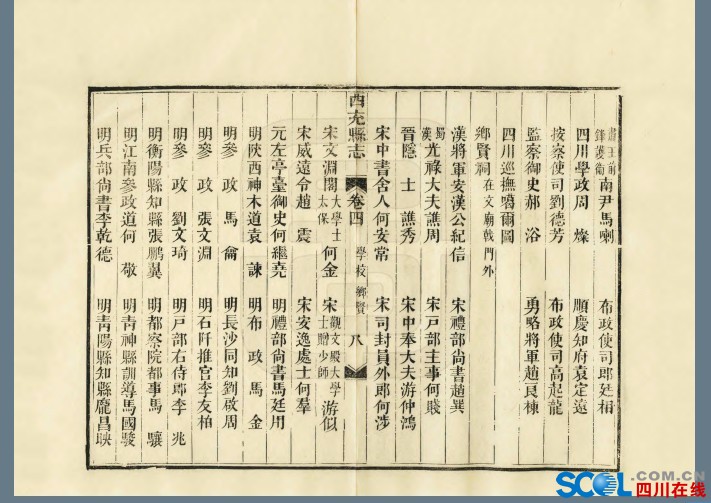 南尹馬喇 布政使司郎廷相
四川學政周燦 順慶知府袁定遠
按察使司劉德芳 布政使司高起龍
監察御史郝浴 勇略將軍趙良棟
四川巡撫噶爾圖
鄉賢祠在文廟戟門外
漢將軍安漢公紀信 宋禮部尚書趙㢲
蜀漢光祿大夫譙周 宋戶部主事何賤
晉隱士譙秀 宋中奉大夫游仲鴻
宋中書舍人何安常 宋司封員外郎何涉
西充縣志 卷四 學校 鄉賢 八
宋文淵閣大學士太保何金 宋觀文殿大學士贈少師游似
宋威遠令趙震 宋安逸處士何羣
元左亭臺御史何繼堯 明禮部尚書馬廷用
明陝西神木道袁諫 明布政馬金
明參政馬侖 明長沙同知劉啟周
明參政張文淵 明石阡推官李友柏
明參政劉文琦 明戶部右侍郎李兆
明衡陽縣知縣張鵬翼 明都察院都事馬驤
明江南參政道何敬 明青神縣訓導馬國駿
明兵部尚書李乾德 明青陽縣知縣龐昌映
SCOL.COM.CN
四川在线